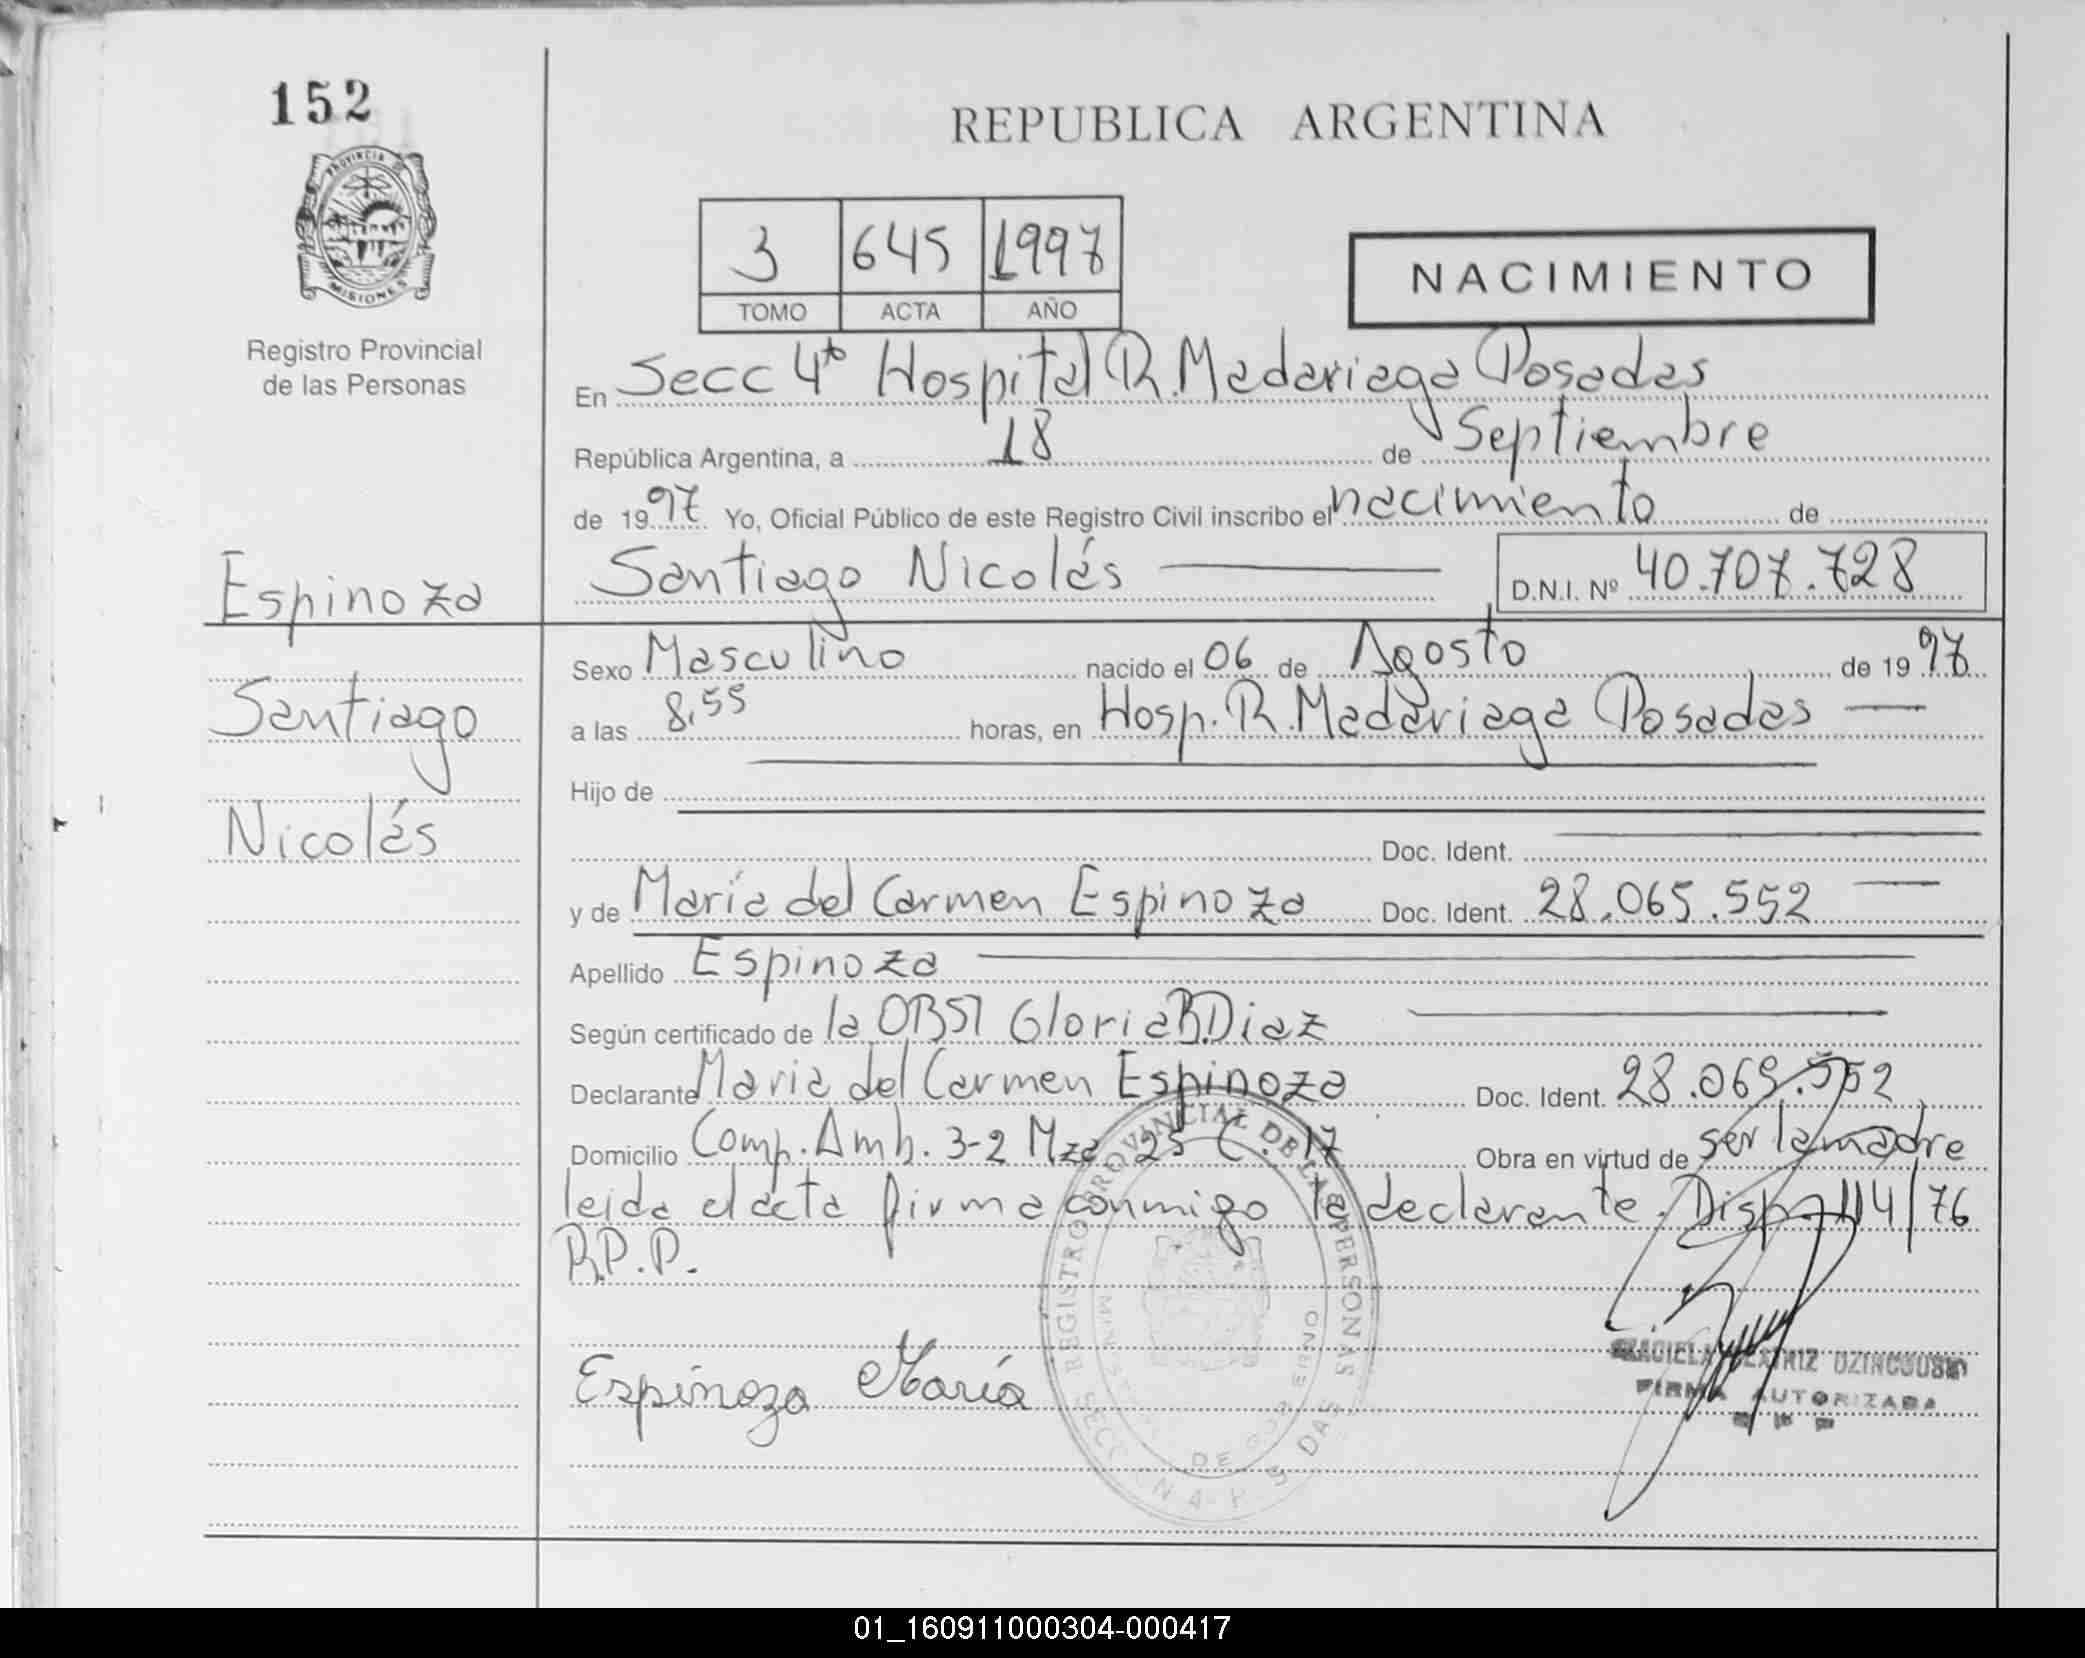 152
REPUBLICA ARGENTINA
PROVINCIA DE
MISIONES
Registro Provincial
de las Personas
3 645 1997
TOMO ACTA AÑO
NACIMIENTO
En Secc 4ta Hospital R. Madariaga Posadas
República Argentina, a 18 de Septiembre
de 1997 Yo, Oficial Público de este Registro Civil inscribo el nacimiento de
Santiago Nicolás D.N.I. Nº 40.707.728
Espinoza
Santiago
Nicolás
Sexo Masculino nacido el 06 de Agosto de 1997
a las 8,55 horas, en Hosp. R. Madariaga Posadas
Hijo de
Doc. Ident.
y de María del Carmen Espinoza Doc. Ident. 28.065.552
Apellido Espinoza
Según certificado de la OBST Gloria B. Diaz
Declarante Maria del Carmen Espinoza Doc. Ident. 28.065.552
Domicilio Comp. Amb. 3-2 Mza 25 C. 17 Obra en virtud de ser la madre
leida el acta firma conmigo la declarante. Disp. 114/76
R.P.P.
Espinoza María
REGISTRO PROVINCIAL DE LAS PERSONAS
FIRMA AUTORIZADA
01_160911000304-000417